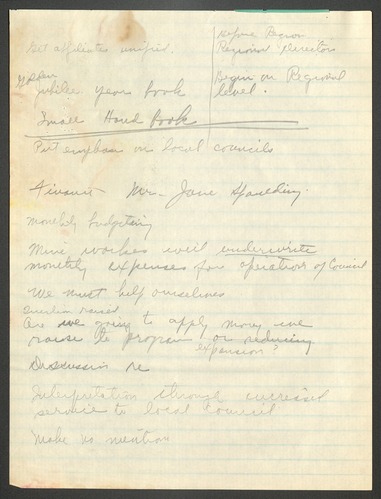 Get affiliates unified.
Before Begun
Regional Directors
Golden
Jubilee year book
Begin on Regional
level.
Small Hand Book
Put emphasis on local councils
Finance Mrs. Jane Spaulding.
Monthly budgeting
Mine workers will underwrite
monthly expenses for operation of Council
We must help ourselves
Question raised
Are we going to apply money we
raise to program or reducing
expansion?
Discussion re
Interpretation through increased
service to local council
Make no mention